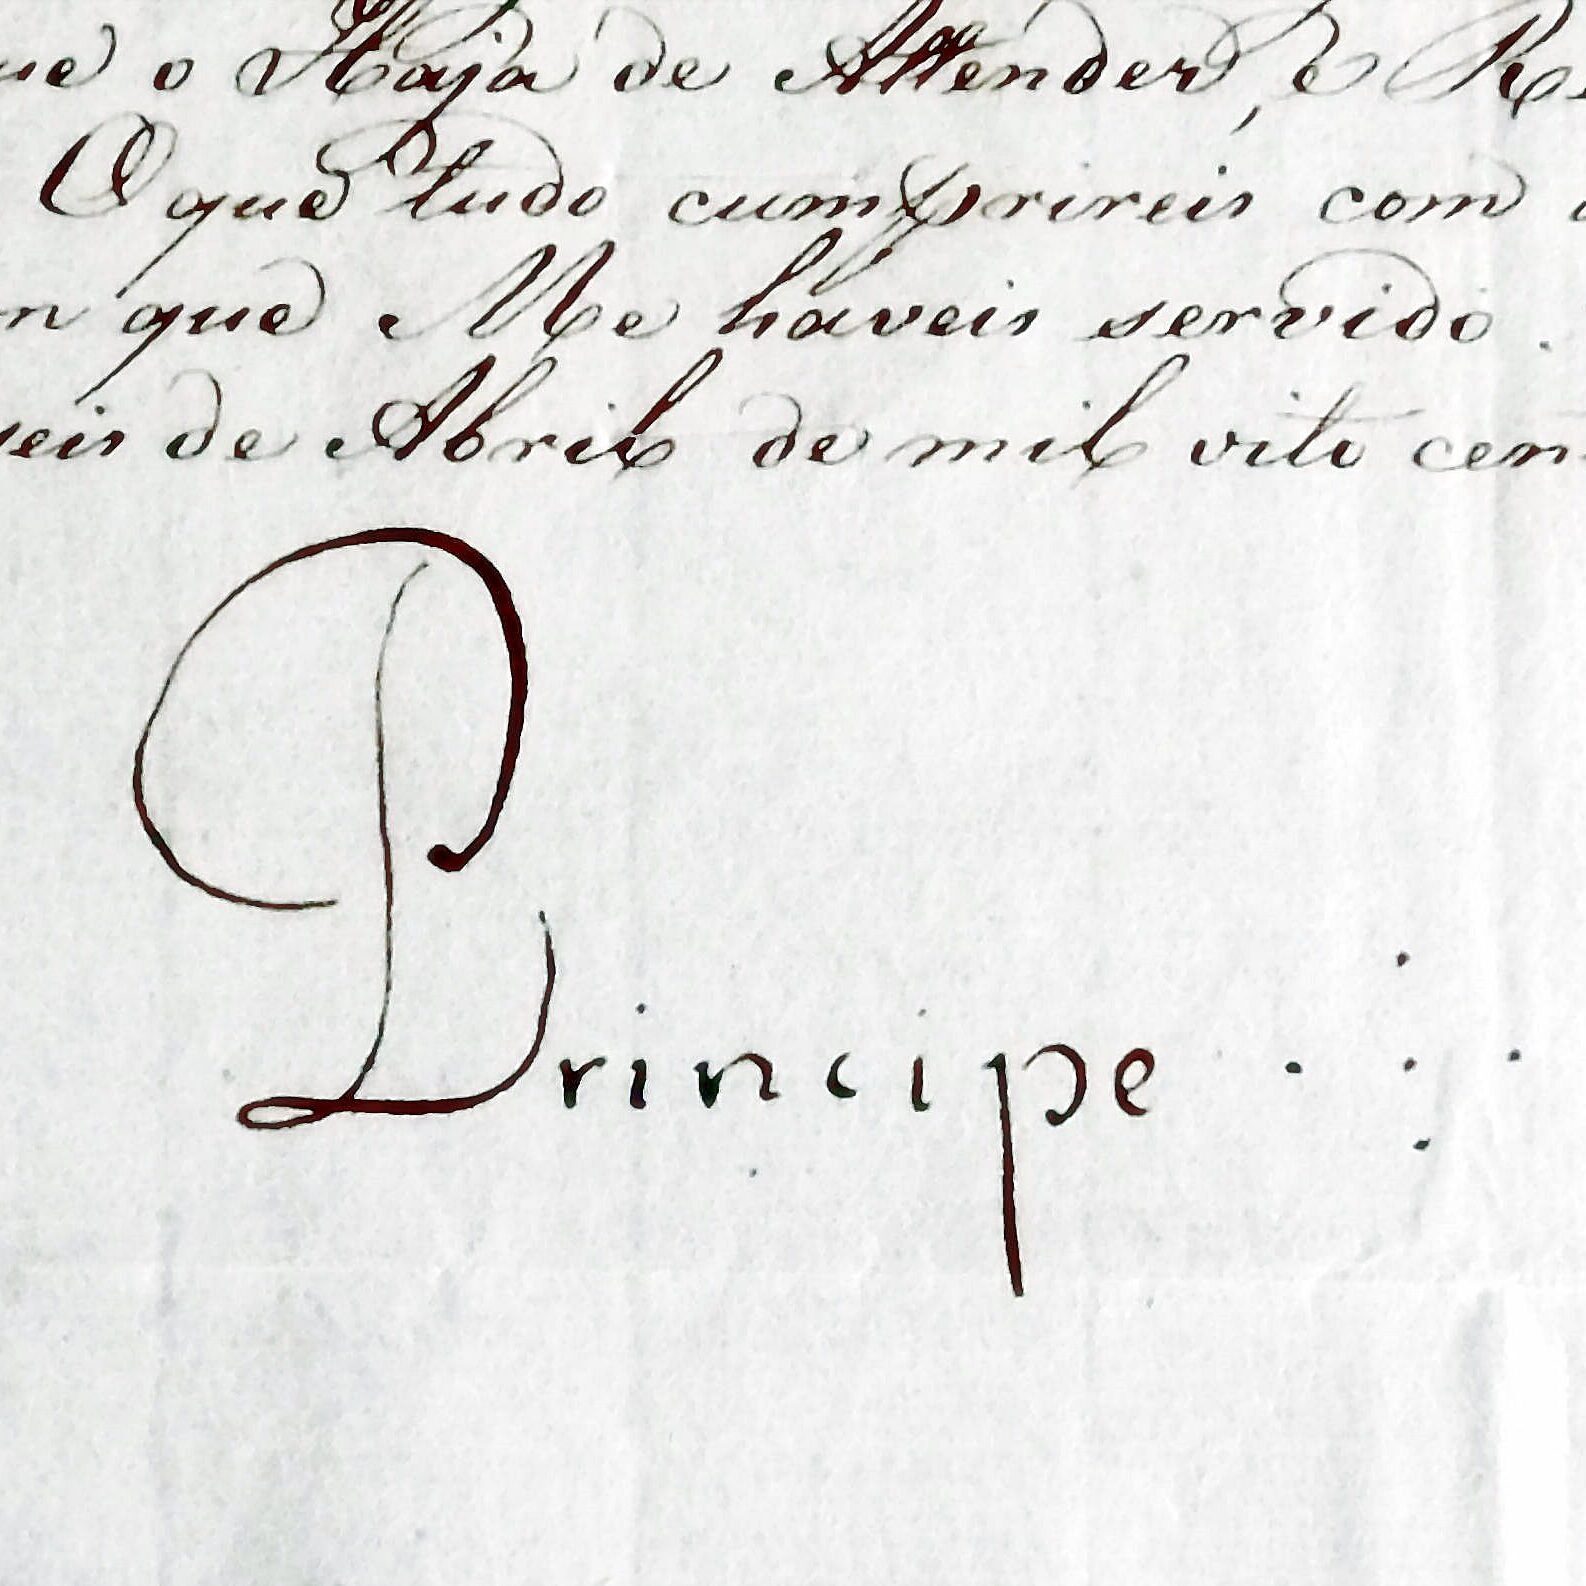 o Haja de Attender, e
O que tudo cumprireis com
que Me haveis servido.
de Abril de mil oito cen
Principe . : .